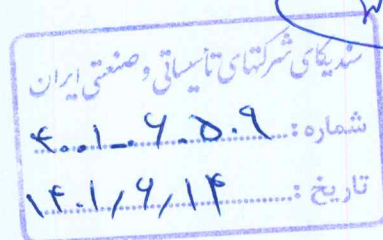 سندیکای شرکتهای تأسیساتی و صنعتی ایران
شماره: ۴۰۰۱-۶-۵۰۹
تاریخ: ۱۴۰۱/۶/۱۴